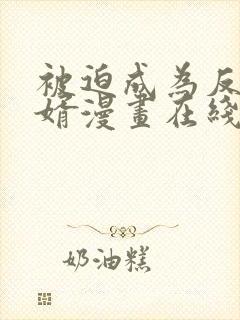 被迫成為反
婿漫畫在綫
奶油糕